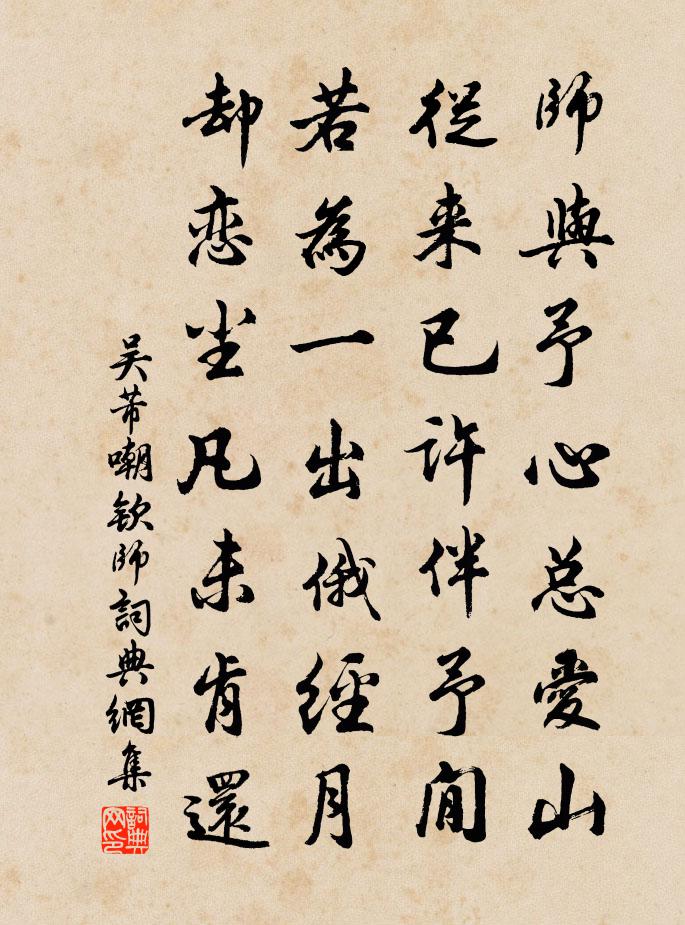 師與予心总愛山
從来已許伴予閒
若為一出俄經月
却恋尘凡未肯還
吴芾嘲钦師詞典網集
詞典网印